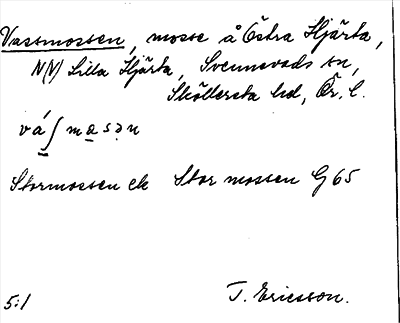 Vassmossen, mosse å Östra Hjärta,
N(V) Lilla Hjärta, Svennevads sn,
Sköllersta hd, Ör. l.
vá∫mɑsən
Stormossen ek Stor mossen G 65
5:1 T. Ericsson.